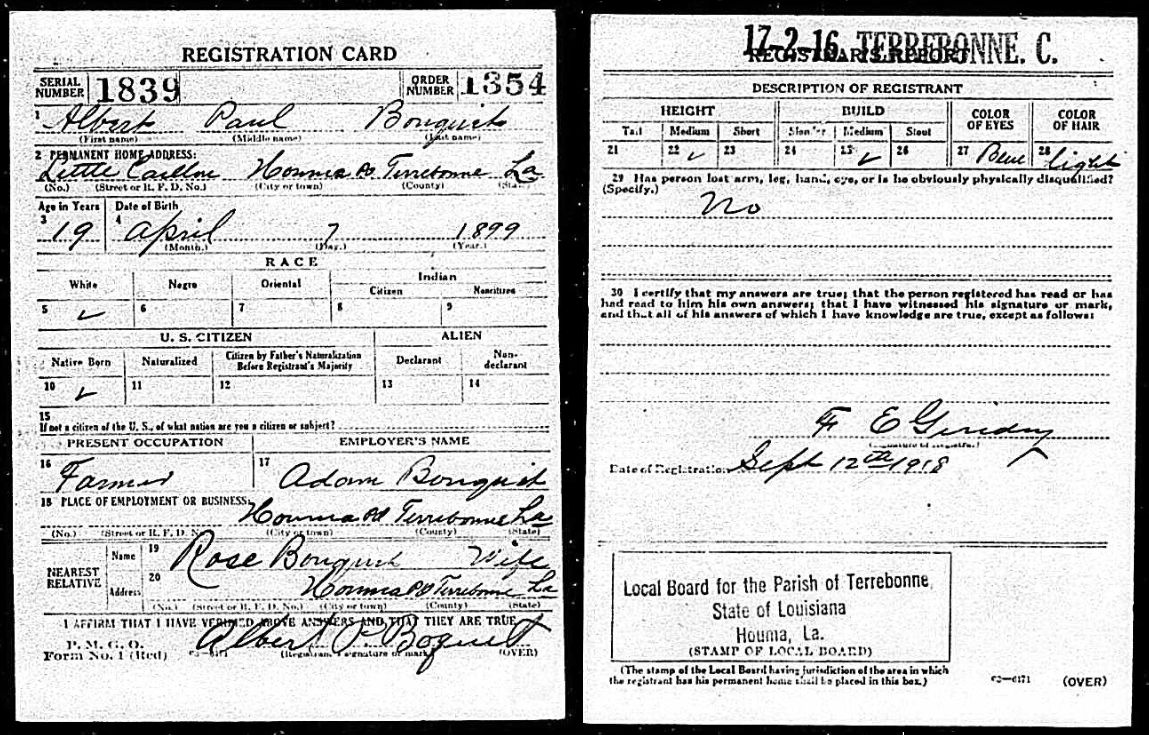 REGISTRATION CARD
SERIAL NUMBER 1839 ORDER NUMBER 1354
1 Albert Paul Bonquist
(First name) (Middle name) (Last name)
2 PERMANENT HOME ADDRESS:
Little Caillou Houma Terrebonne La
(No.) (Street or R. F. D. No.) (City or town) (County) (State)
Age in Years Date of Birth
3 19 4 April 7 1899
(Month.) (Day.) (Year.)
RACE
White Negro Oriental Indian
Citizen Noncitizen
5 ✓ 6 7 8 9
U. S. CITIZEN ALIEN
Native Born Naturalized Citizen by Father's Naturalization Before Registrant's Majority Declarant Non-declarant
10 ✓ 11 12 13 14
15
If not a citizen of the U. S., of what nation are you a citizen or subject?
PRESENT OCCUPATION EMPLOYER'S NAME
16 Farmer 17 Adam Bonquist
18 PLACE OF EMPLOYMENT OR BUSINESS:
Houma Terrebonne La
(No.) (Street or R. F. D. No.) (City or town) (County) (State)
NEAREST RELATIVE
Name 19 Rose Bonquist Wife
Address 20 Houma Terrebonne La
(No.) (Street or R. F. D. No.) (City or town) (County) (State)
I AFFIRM THAT I HAVE VERIFIED ABOVE ANSWERS AND THAT THEY ARE TRUE
P. M. G. O.
Form No. 1 (Red) Albert P Boquet
(Registrant's signature or mark) (OVER)
17-2-16 TERREBONNE. C.
REGISTRAR'S REPORT
DESCRIPTION OF REGISTRANT
HEIGHT BUILD COLOR OF EYES COLOR OF HAIR
Tall Medium Short Slender Medium Stout
21 22 ✓ 23 24 25 ✓ 26 27 Blue 28 light
29 Has person lost arm, leg, hand, eye, or is he obviously physically disqualified?
(Specify.)
No
30 I certify that my answers are true; that the person registered has read or has
had read to him his own answers; that I have witnessed his signature or mark,
and that all of his answers of which I have knowledge are true, except as follows:
F E
(Signature of Registrar)
Date of Registration Sept 12th 1918
Local Board for the Parish of Terrebonne,
State of Louisiana
Houma, La.
(STAMP OF LOCAL BOARD)
(The stamp of the Local Board having jurisdiction of the area in which
the registrant has his permanent home shall be placed in this box.)
03—6171 (OVER)